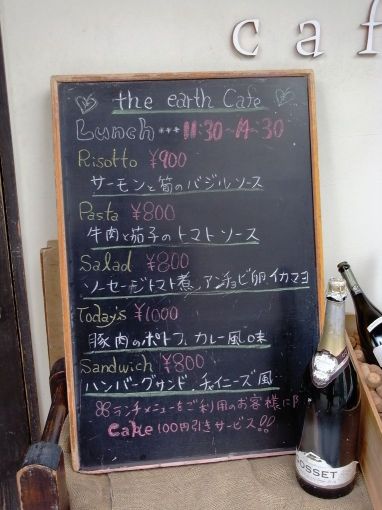 caf
the earth Cafe
Lunch*** 11:30~14:30
Risotto ¥900
サーモンと筍のバジルソース
Pasta ¥800
牛肉と茄子のトマトソース
Salad ¥800
ソーセージトマト煮、アンチョビ卵、イカマヨ
Today's ¥1000
豚肉のポトフ、カレー風味
Sandwich ¥800
ハンバーグサンド、チャイニーズ風
ランチメニューをご利用のお客様に
Cake 100円引きサービス!!
POSSET